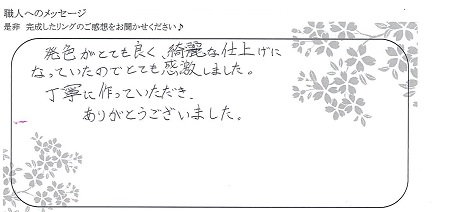 職人へのメッセージ
是非 完成したリングのご感想をお聞かせください♪
発色がとても良く、綺麗な仕上げに
なっていたのでとても感激しました。
丁寧に作っていただき、
ありがとうございました。